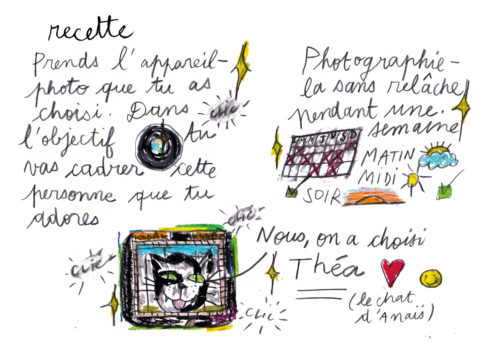 recette
Prends l'appareil-
photo que tu as
choisi. Dans
clic
l'objectif tu
vas cadrer cette
personne que tu
adores
Photographie-
la sans relâche
pendant une
semaine
MATIN
MIDI
SOIR
clic
CLIC
CLIC
Nous, on a choisi
Théa
(le chat
d'Anaïs)